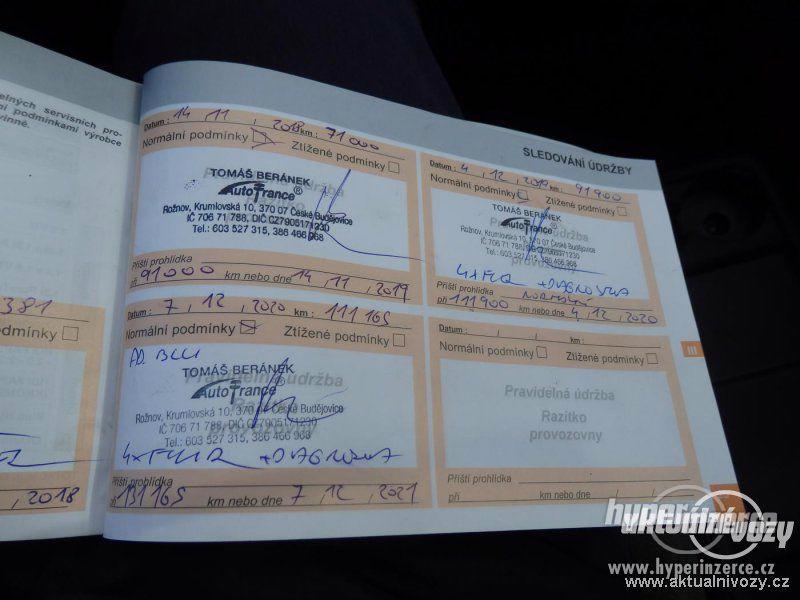 elných servisních pro-
ní podmínkami výrobce
vinně.
381
dmínky
2018
SLEDOVÁNÍ ÚDRŽBY
Datum : 14 11 2018 km : 71000
Normální podmínky
Ztížené podmínky
TOMÁŠ BERÁNEK
AutoTrance®
Rožnov, Krumlovská 10, 370 07 České Budějovice
IČ 706 71 788, DIČ CZ7905171230
Tel.: 603 527 315, 386 466 968
Příští prohlídka
při 91000 km nebo dne 14 , 11 , 2019
Datum : 4 , 12 , 2019 km : 91900
Normální podmínky
Ztížené podmínky
TOMÁŠ BERÁNEK
AutoTrance®
Rožnov, Krumlovská 10, 370 07 České Budějovice
IČ 706 71 788, DIČ CZ7905171230
Tel.: 603 527 315, 386 466 968
4xFILTR + DIAGNOSTIKA
Příští prohlídka NORMÁLNÍ
při 111900 km nebo dne 4 , 12 , 2020
Datum : 7 , 12 , 2020 km : 111165
Normální podmínky
Ztížené podmínky
TOMÁŠ BERÁNEK
Pravidelná údržba
AutoTrance®
Rožnov, Krumlovská 10, 370 07 České Budějovice
IČ 706 71 788, DIČ CZ7905171230
Tel.: 603 527 315, 386 466 968
provozovny
4xFILTR + DIAGNOSTIKA
Příští prohlídka
při 131165 km nebo dne 7 , 12 , 2021
Datum : / / km :
Normální podmínky
Ztížené podmínky
Pravidelná údržba
Razítko
provozovny
Příští prohlídka
při km nebo dne / /
III
hyperinzerce.cz
aktualnivozy
www.hyperinzerce.cz
www.aktualnivozy.cz